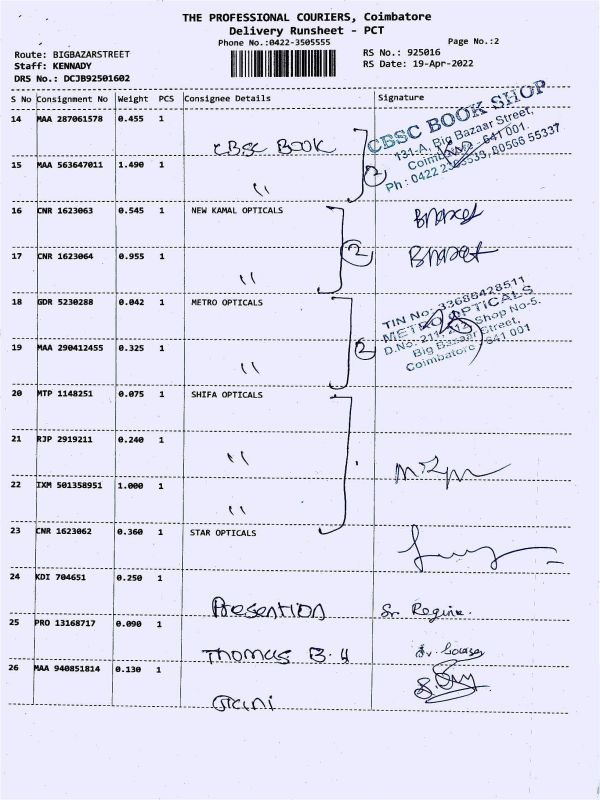 THE PROFESSIONAL COURIERS, Coimbatore
Delivery Runsheet - PCT
Phone No.:0422-3505555
Page No.:2
Route: BIGBAZARSTREET
RS No.: 925016
Staff: KENNADY
RS Date: 19-Apr-2022
DRS No.: DCJB92501602
S No Consignment No Weight PCS Consignee Details Signature
14 MAA 287061578 0.455 1
CBSC BOOK
CBSC BOOK SHOP
131-A, Big Bazaar Street,
Coimbatore - 641 001.
Ph : 0422 80566 55337
15 MAA 563647011 1.490 1
"
2
16 CNR 1623063 0.545 1 NEW KAMAL OPTICALS
17 CNR 1623064 0.955 1
"
2
18 GDR 5230288 0.042 1 METRO OPTICALS
TIN No: 33686428511
METRO OPTICALS
D.No: 211, 212, Shop No-5,
Big Bazaar Street,
Coimbatore - 641 001
19 MAA 290412455 0.325 1
"
2
20 MTP 1148251 0.075 1 SHIFA OPTICALS
21 RJP 2919211 0.240 1
"
22 IXM 501358951 1.000 1
"
23 CNR 1623062 0.360 1 STAR OPTICALS
24 KDI 704651 0.250 1
Presention Sr. Regina.
25 PRO 13168717 0.090 1
Thomas B. H
26 MAA 940851814 0.130 1